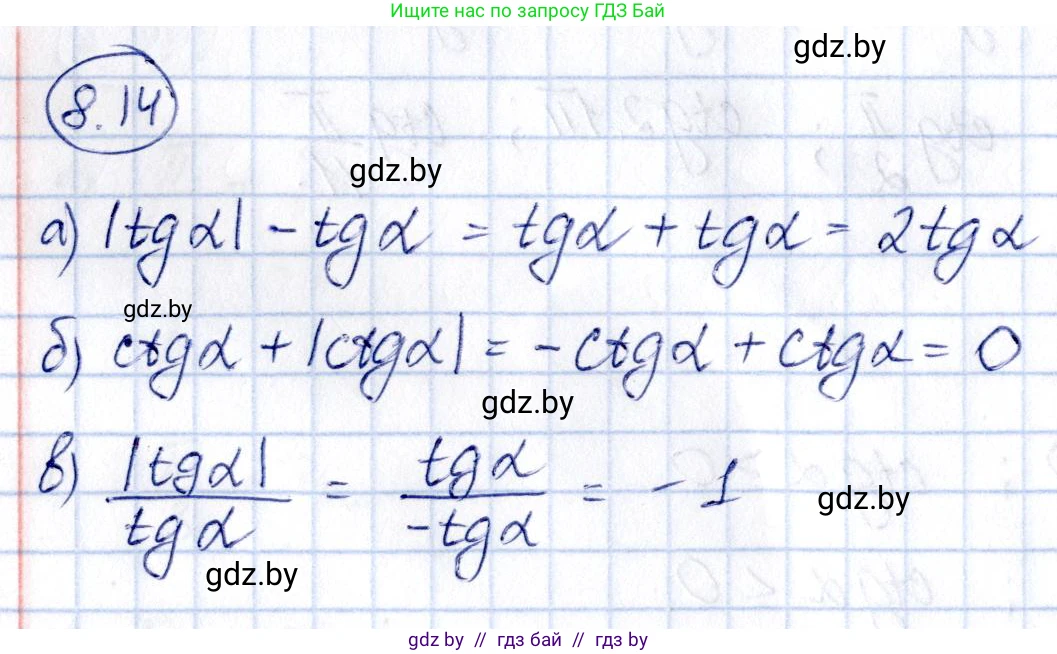 Ищите нас по запросу ГДЗ Бай
gdz.by
8.14
gdz.by
а) |tgα| - tgα = tgα + tgα = 2tgα
gdz.by
б) ctgα + |ctgα| = -ctgα + ctgα = 0
gdz.by
в) |tgα| / tgα = tgα / -tgα = -1
gdz.by
gdz.by
gdz by // гдз бай // гдз by